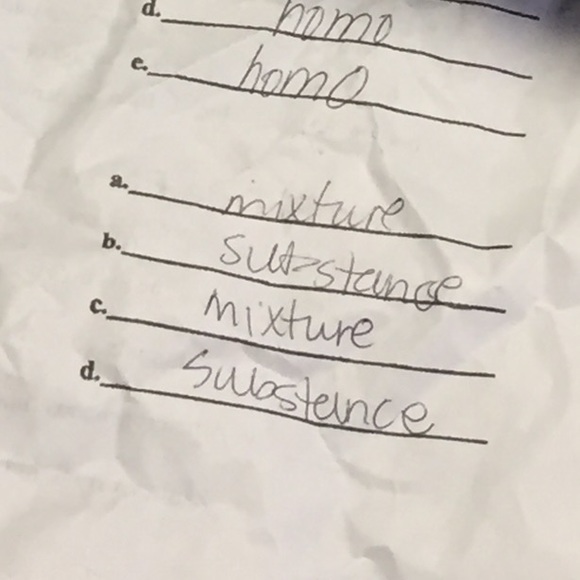 d. homo
e. homo
a. mixture
b. substance
c. mixture
d. substance